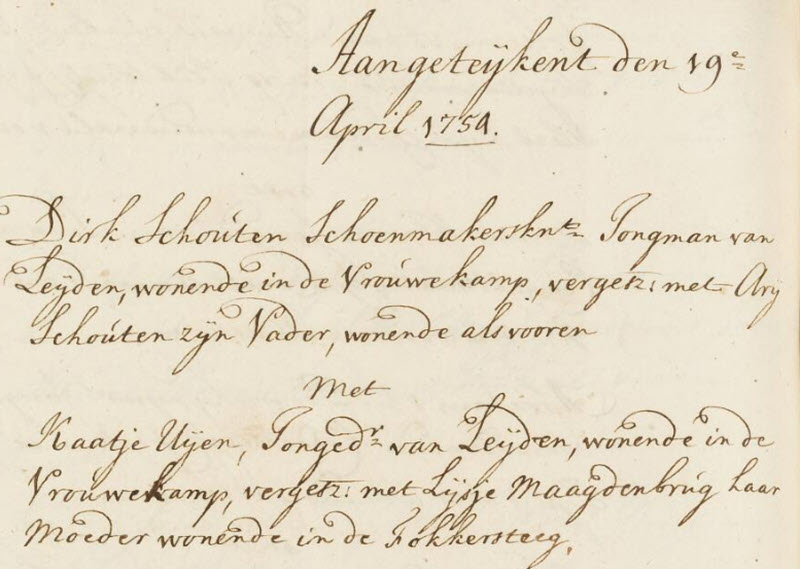 Aangeteijkent den 19e
April 1754.
Dirk Schouten Schoenmakersknt Jongman van
Leijden, wonende in de Vrouwekamp, vergez: met Arij
Schouten zijn Vader, wonende als vooren
Met
Kaatje Uijen, Jongedr van Leijden, wonende in de
Vrouwekamp, vergez: met Lijsje Maagdenbrug haar
Moeder wonende in de Fokkersteeg.